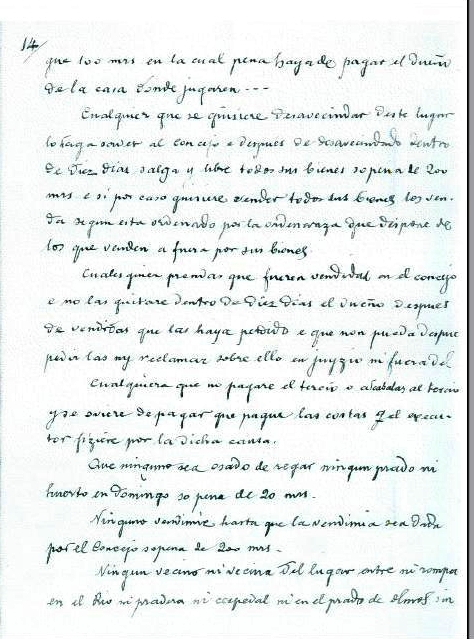 14/
que 100 mrs en la cual pena haya de pagar el dueño
de la casa donde jugaren ---
Cualquier que se quisiere desavecindar deste lugar
lo haga saver al concejo e despues de desavecindado dentro
de diez dias salga y libre todos sus bienes so pena de 200
mrs e si por caso quisiere vender todos sus bienes los ven-
da segun esta ordenado por la ordenanza que dispone de
los que venden a fuera por sus bienes.
Cuales quier prendas que fueren vendidas en el concejo
e no las quitare dentro de diez dias el dueño despues
de vendidas que las haya perdido e que non pueda despues
pedir las ny reclamar sobre ello en juyzio ni fuera del
Cualquiera que no pagare el tercio o alcabalas al tercio
y se oviere de pagar que pague las costas q el execu-
tor fiziere por la dicha causa.
Que ninguno sea osado de regar ningun prado ni
huerto en domingo so pena de 20 mrs.
Ninguno vendimie hasta que la vendimia sea dada
por el Concejo sopena de 200 mrs.-
Ningun vecino ni vecina del lugar entre ni rompa
en el Rio ni pradera ni cespedal ni en el prado de olmos sin